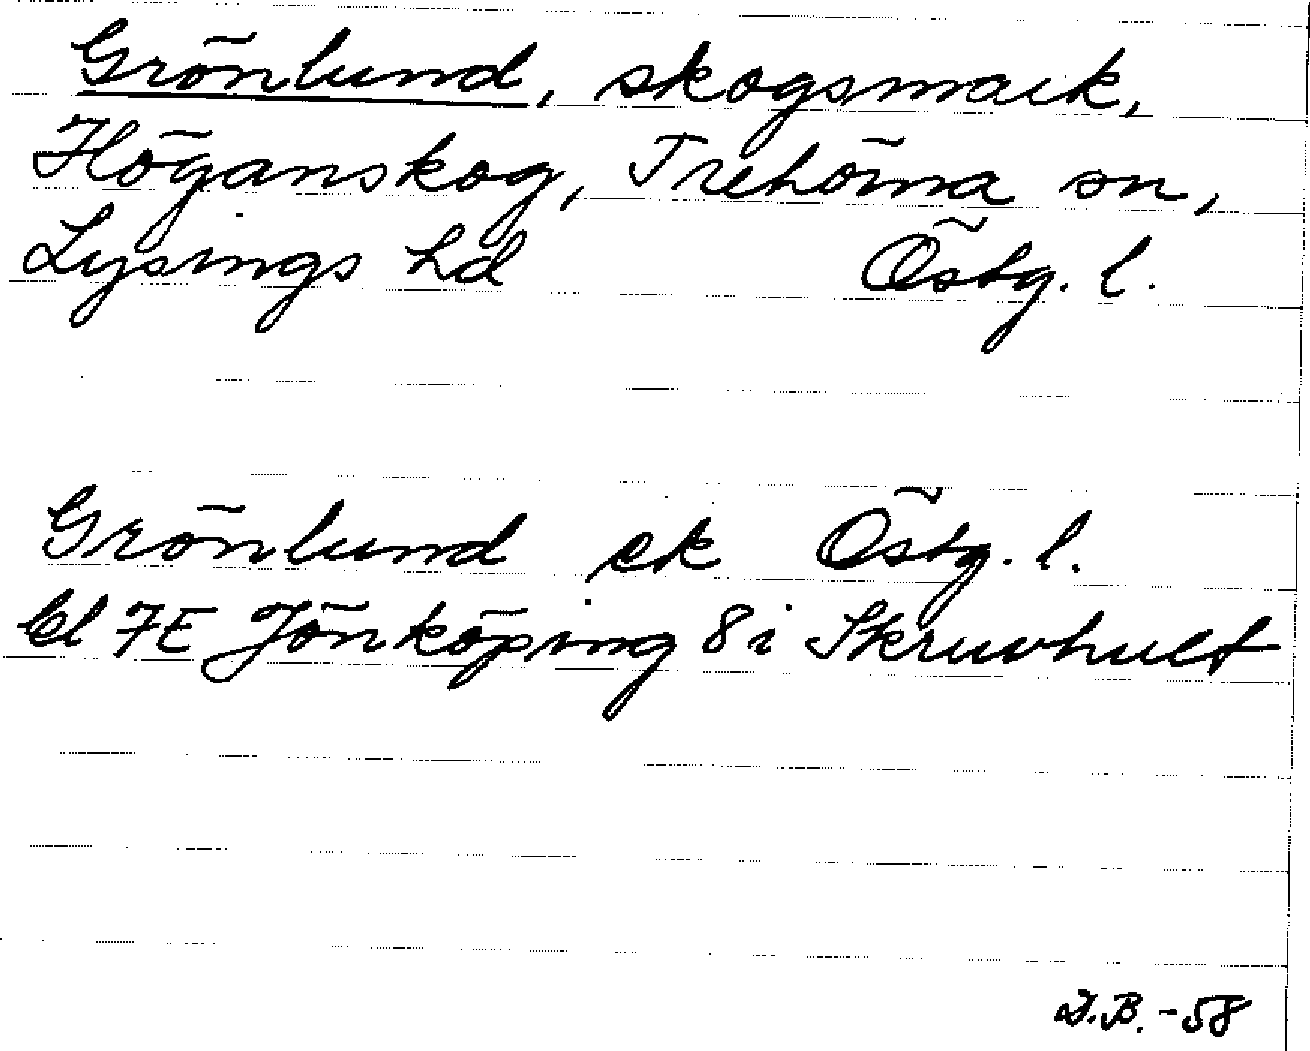 Grönlund, skogsmark,
Höganskog, Trehörna sn,
Lysings hd Östg. l.
Grönlund ek Östg. l.
bl 7E Jönköping 8i Skruvhult
D.B. -58